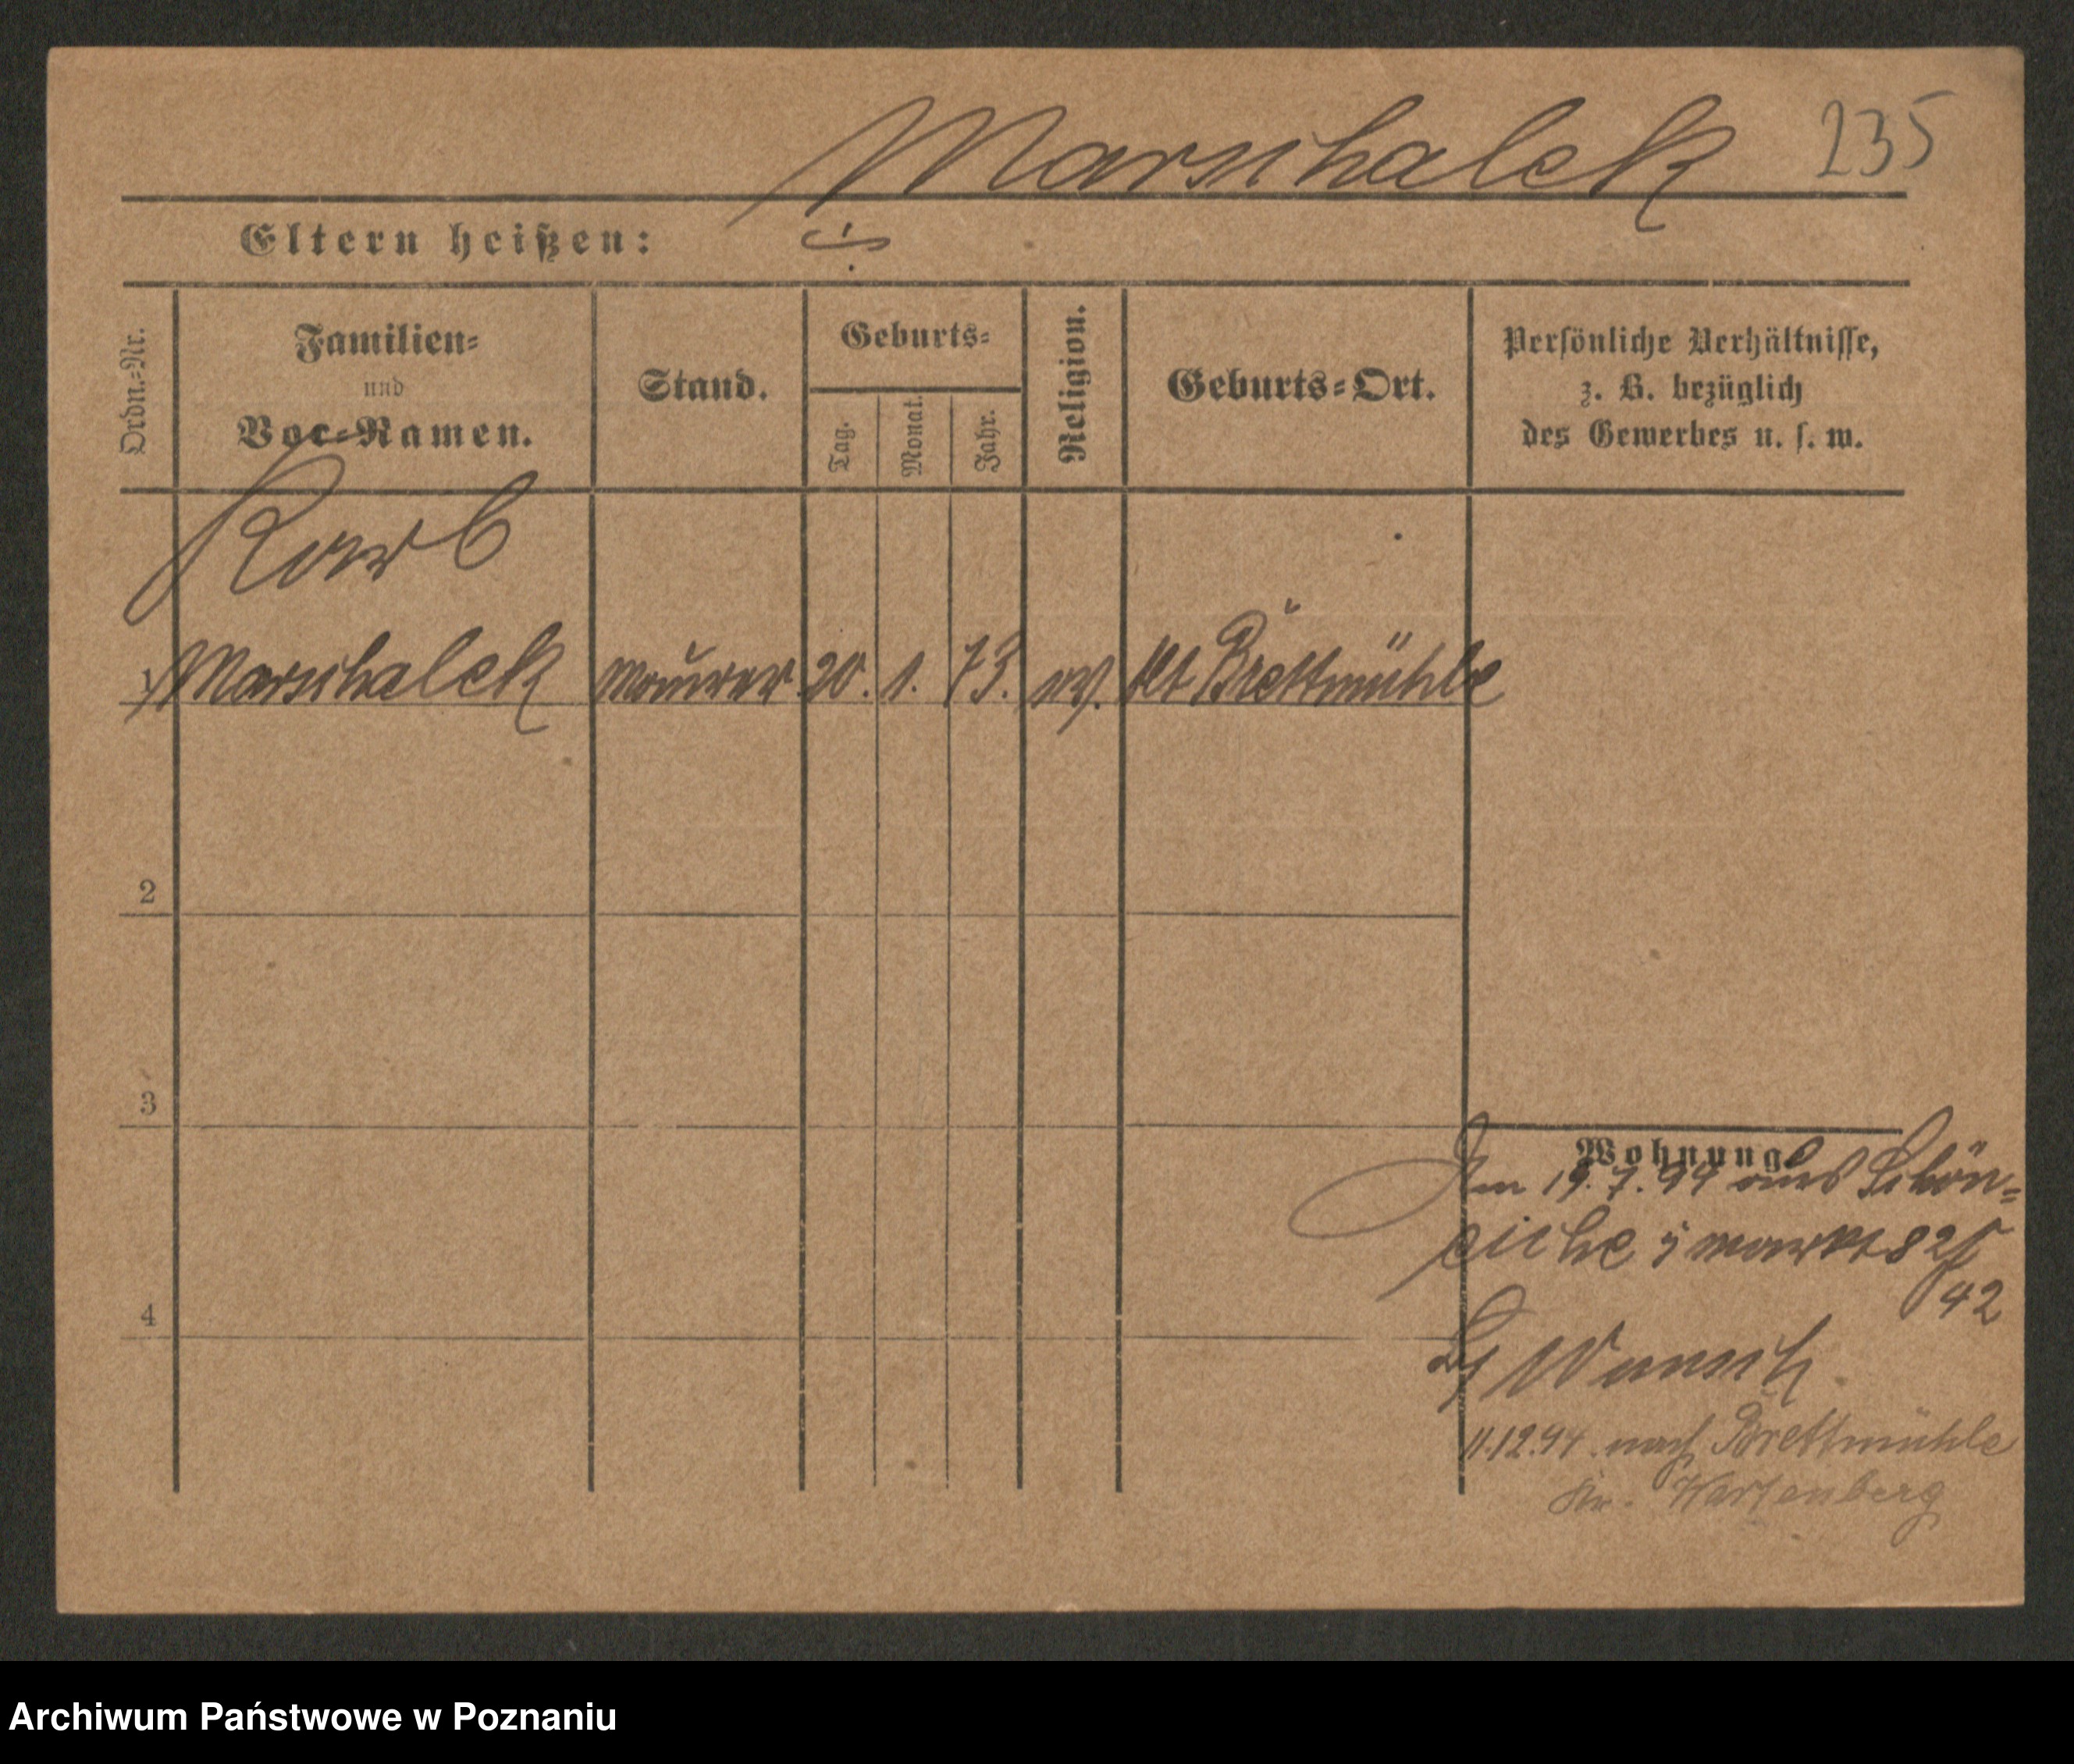 Marschalek 235
Eltern heißen:
Ordn.-Nr.
Familien-
und
Vor-Namen.
Stand.
Geburts-
Tag.
Monat.
Jahr.
Religion.
Geburts-Ort.
Persönliche Verhältnisse,
z. B. bezüglich
des Gewerbes u. s. w.
Karl
1 Marschalek Maurer 20. 1. 73. ev. Kl Brettmühle
2
3
4
Wohnung
19.7.94 aus Schön-
eiche markt 82
42
b/ Wunsch
11.12.94. nach Brettmühle
Kr. Wartenberg
Archiwum Państwowe w Poznaniu